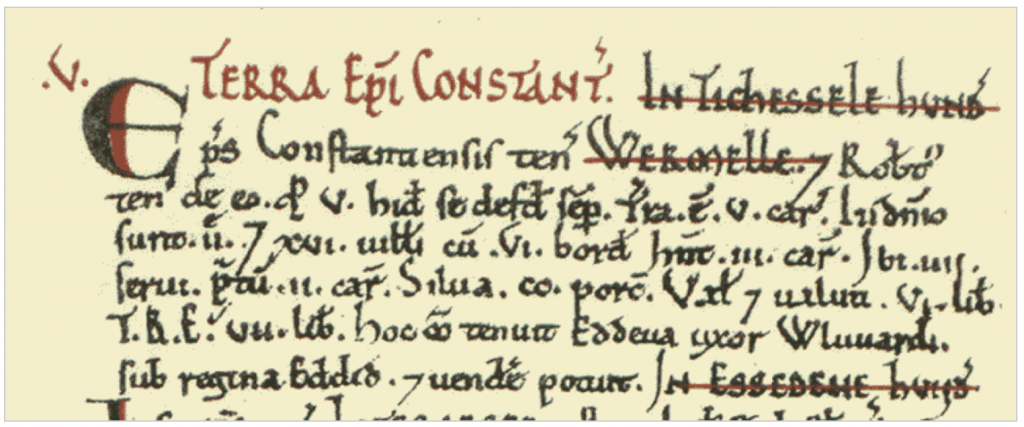 .V. TERRA Ep̄i CONSTANT̄. IN TICHESSELE hVND̕
Ep̄s Constantiensis ten̄ WERMELLE. ⁊ Robt̕
ten̄ de eo. q̄ V. hid̄ se defd̄ sēp. Tr̄a. ē. v. car̄. In dn̄io
sunt. ii. ⁊ xvi. uitti cū .vi. bord̄ hn̄t. iii. car̄. Ibi. iiij.
serui. p̄tū. ii. car̄. Silua. co. porc̄. Vat ⁊ ualuit. vi. lib̄.
T.R.E. vii. lib̄. hoc m̄ tenuit Eddeua uxor Wluuardi.
sub regina Eddid. ⁊ uendē potuit. IN ESSEDENE hVND̕